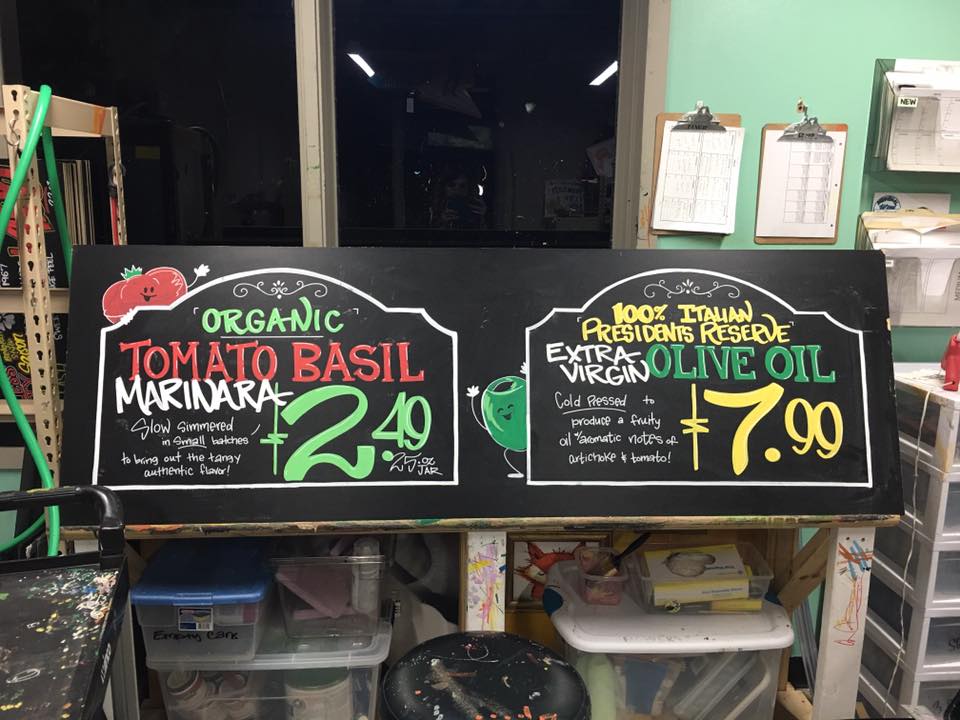 ORGANIC
TOMATO BASIL
MARINARA
$2.49
Slow Simmered
in Small batches
to bring out the tangy
authentic flavor!
25-oz
JAR
100% ITALIAN
PRESIDENTS RESERVE
EXTRA-
VIRGIN
OLIVE OIL
Cold Pressed to
produce a fruity
oil & aromatic notes of
artichoke & tomato!
$7.99
NEW
Empty Cans
1967